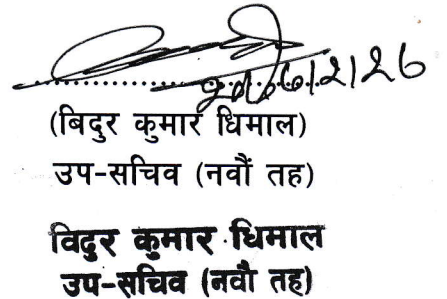 (बिदुर कुमार धिमाल)
उप-सचिव (नवौं तह)
विदुर कुमार धिमाल
उप-सचिव (नवौ तह)